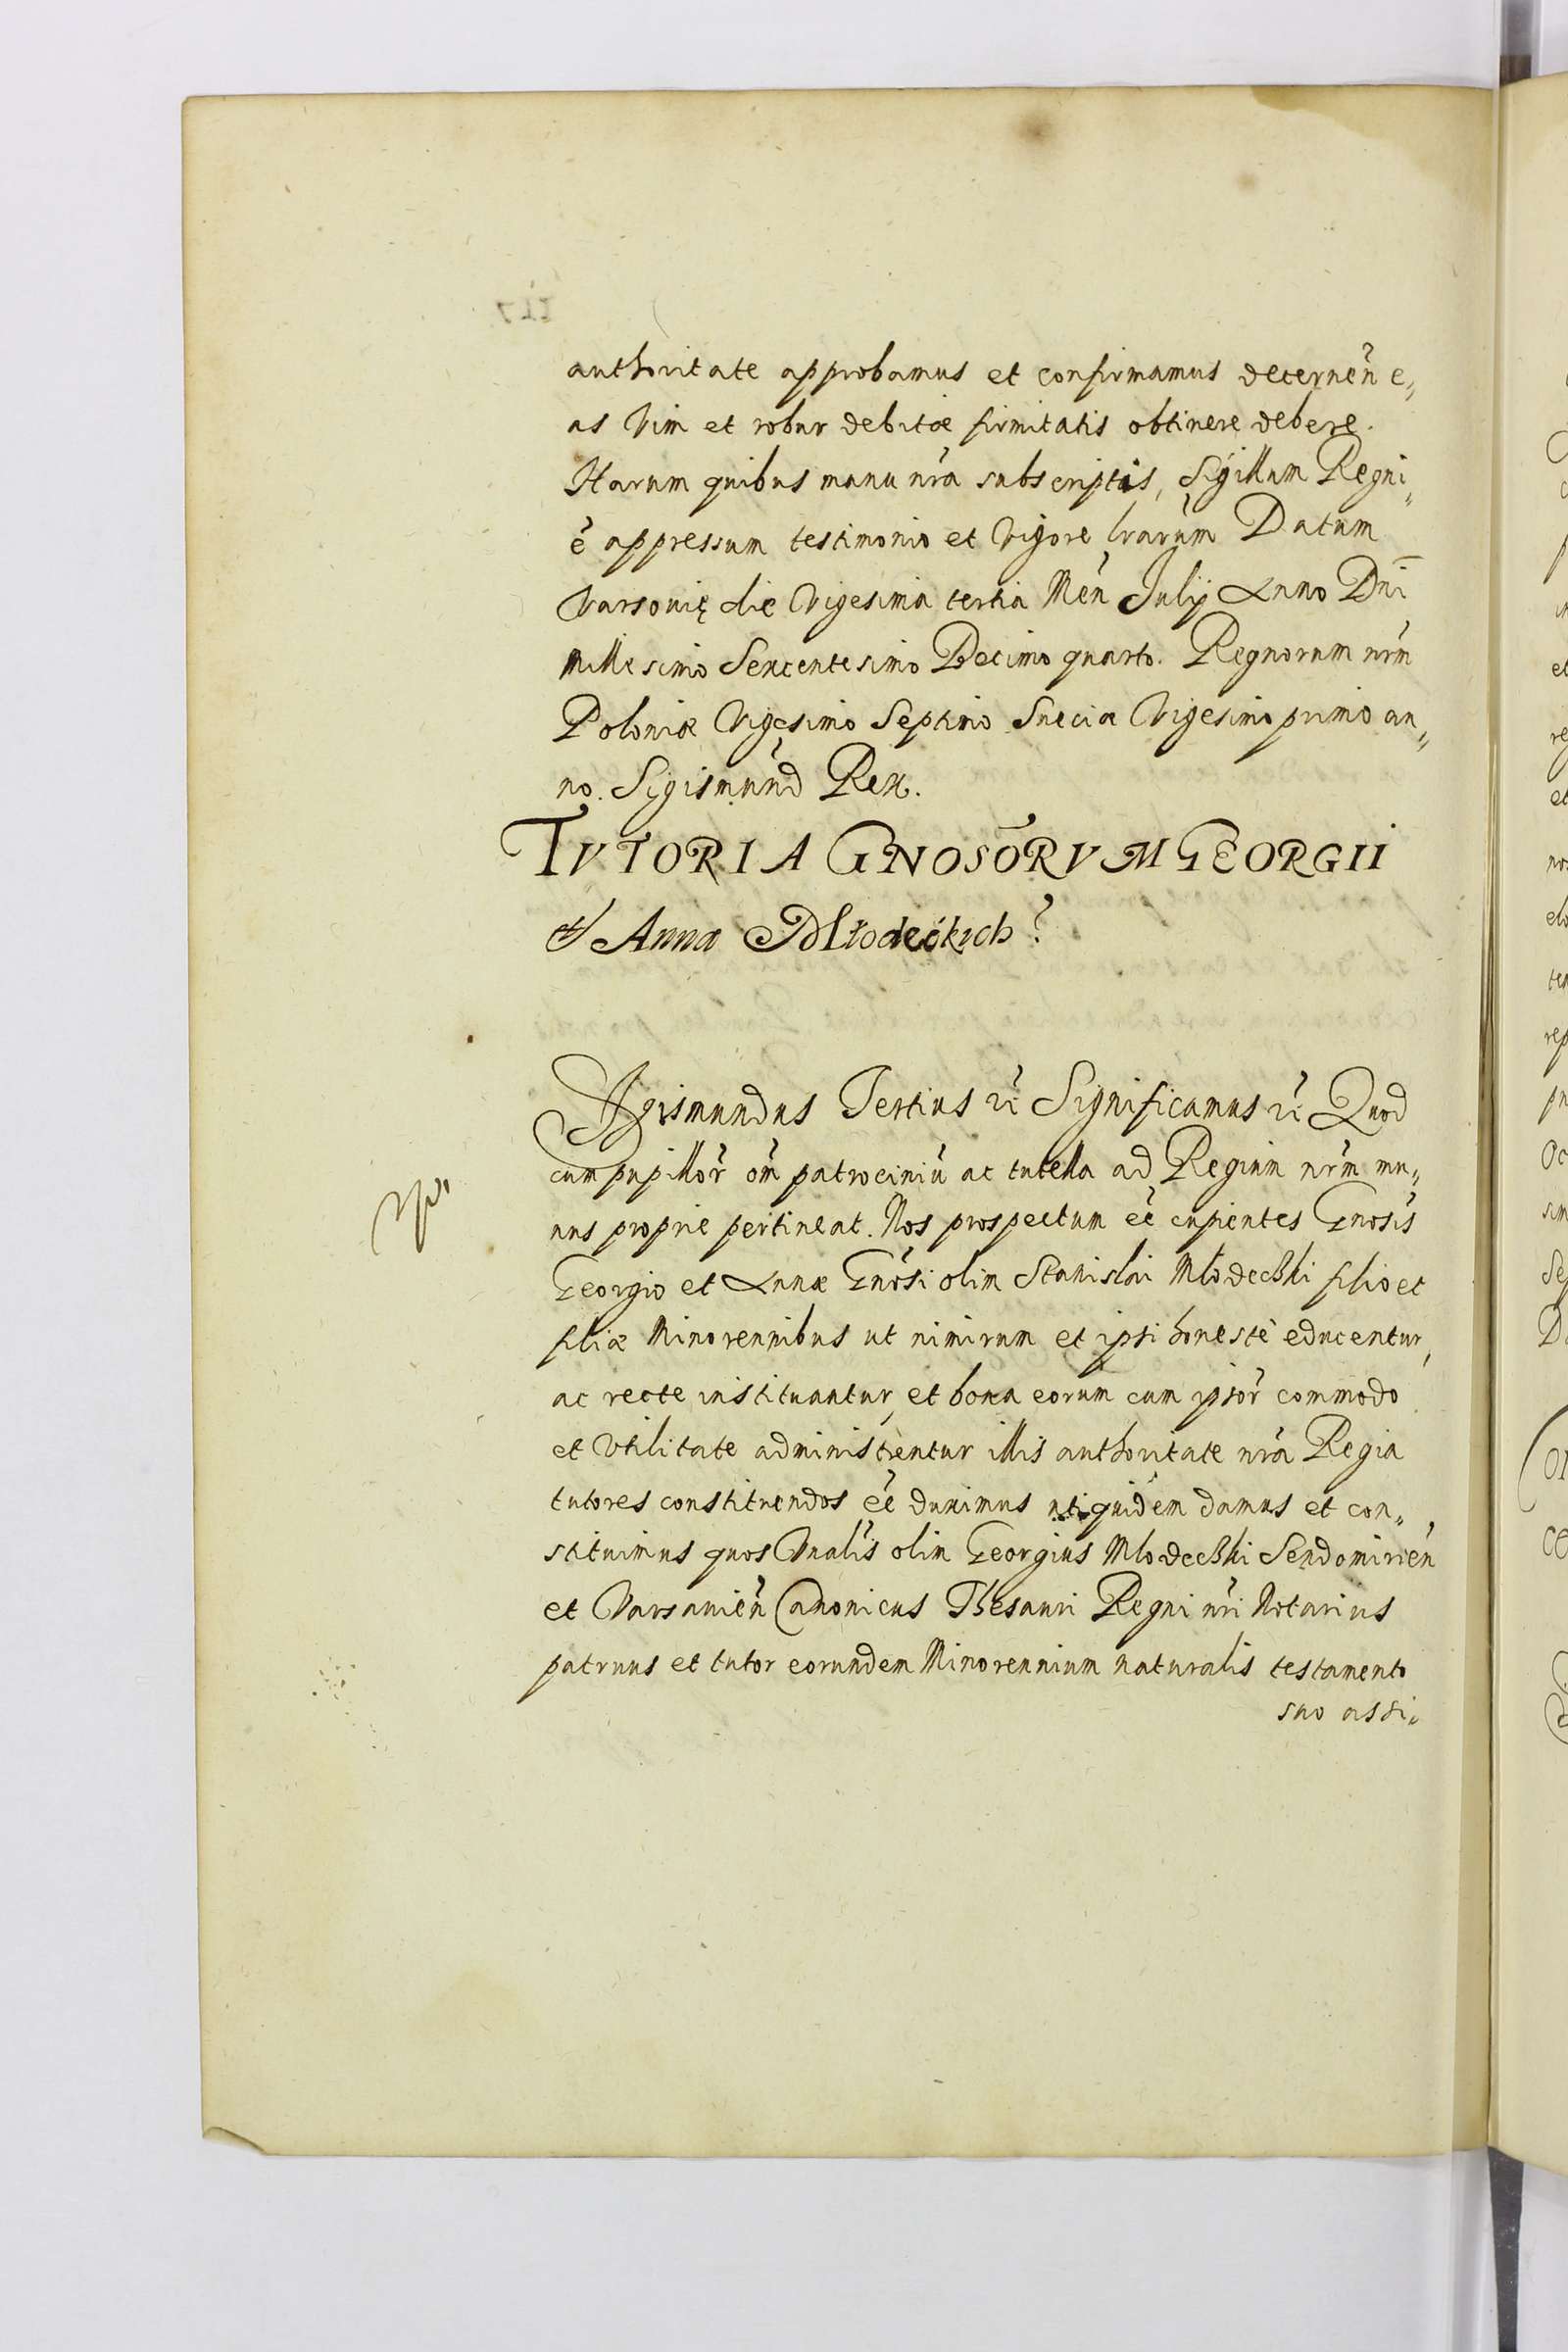 authoritate approbamus et confirmamus decernen̄ e„
as Vim et robur debitæ firmitatis obtinere debere.
Harum quibus manu nr̃a subscriptis, Sigillum Regni„
ẽ appressum testimonio et Vigore lrarũm Datum
Varsovię die Vigesima tertia Meñ Julij Anno Dnī
Millesimo Sexcentesimo Decimo quarto. Regnorum nrm̃
Poloniæ Vigesimo Septimo Sueciæ Vigesimo primo an„
no. Sigismund̃ Rex.
TVTORIA GNOSŌRVM GEORGII
et Anna Młodeckich
Sigismundus Tertius rc̃ Significamus rc̃ Quod
cum pupillor̃ om̃ patrociniũ ac tutella ad Regium nrm̃ mu„
nus proprie pertineat. Nos prospectum eẽ cupientes Gnosis̃
Georgio et Annæ Gnosĩ olim Stanislai Mlodeczki filio et
filiæ Minorennibus ut nimirum et ipsi honestè educentur,
ac recte instituantur, et bona eorum cum ipsor̃ commodo
et Vtilitate administrentur illis authoritate nr̃a Regia
tutores constituendos eẽ duximus uti quidem damus et con„
stituimus quos Vnalis̃ olim Georgius Mlodeczki Sendomirien̄
et Varsavien̄ Canonicus Thesauri Regni nrĩ Notarius
patruus et tutor eorundem Minorennium naturalis testamento
suo assi„